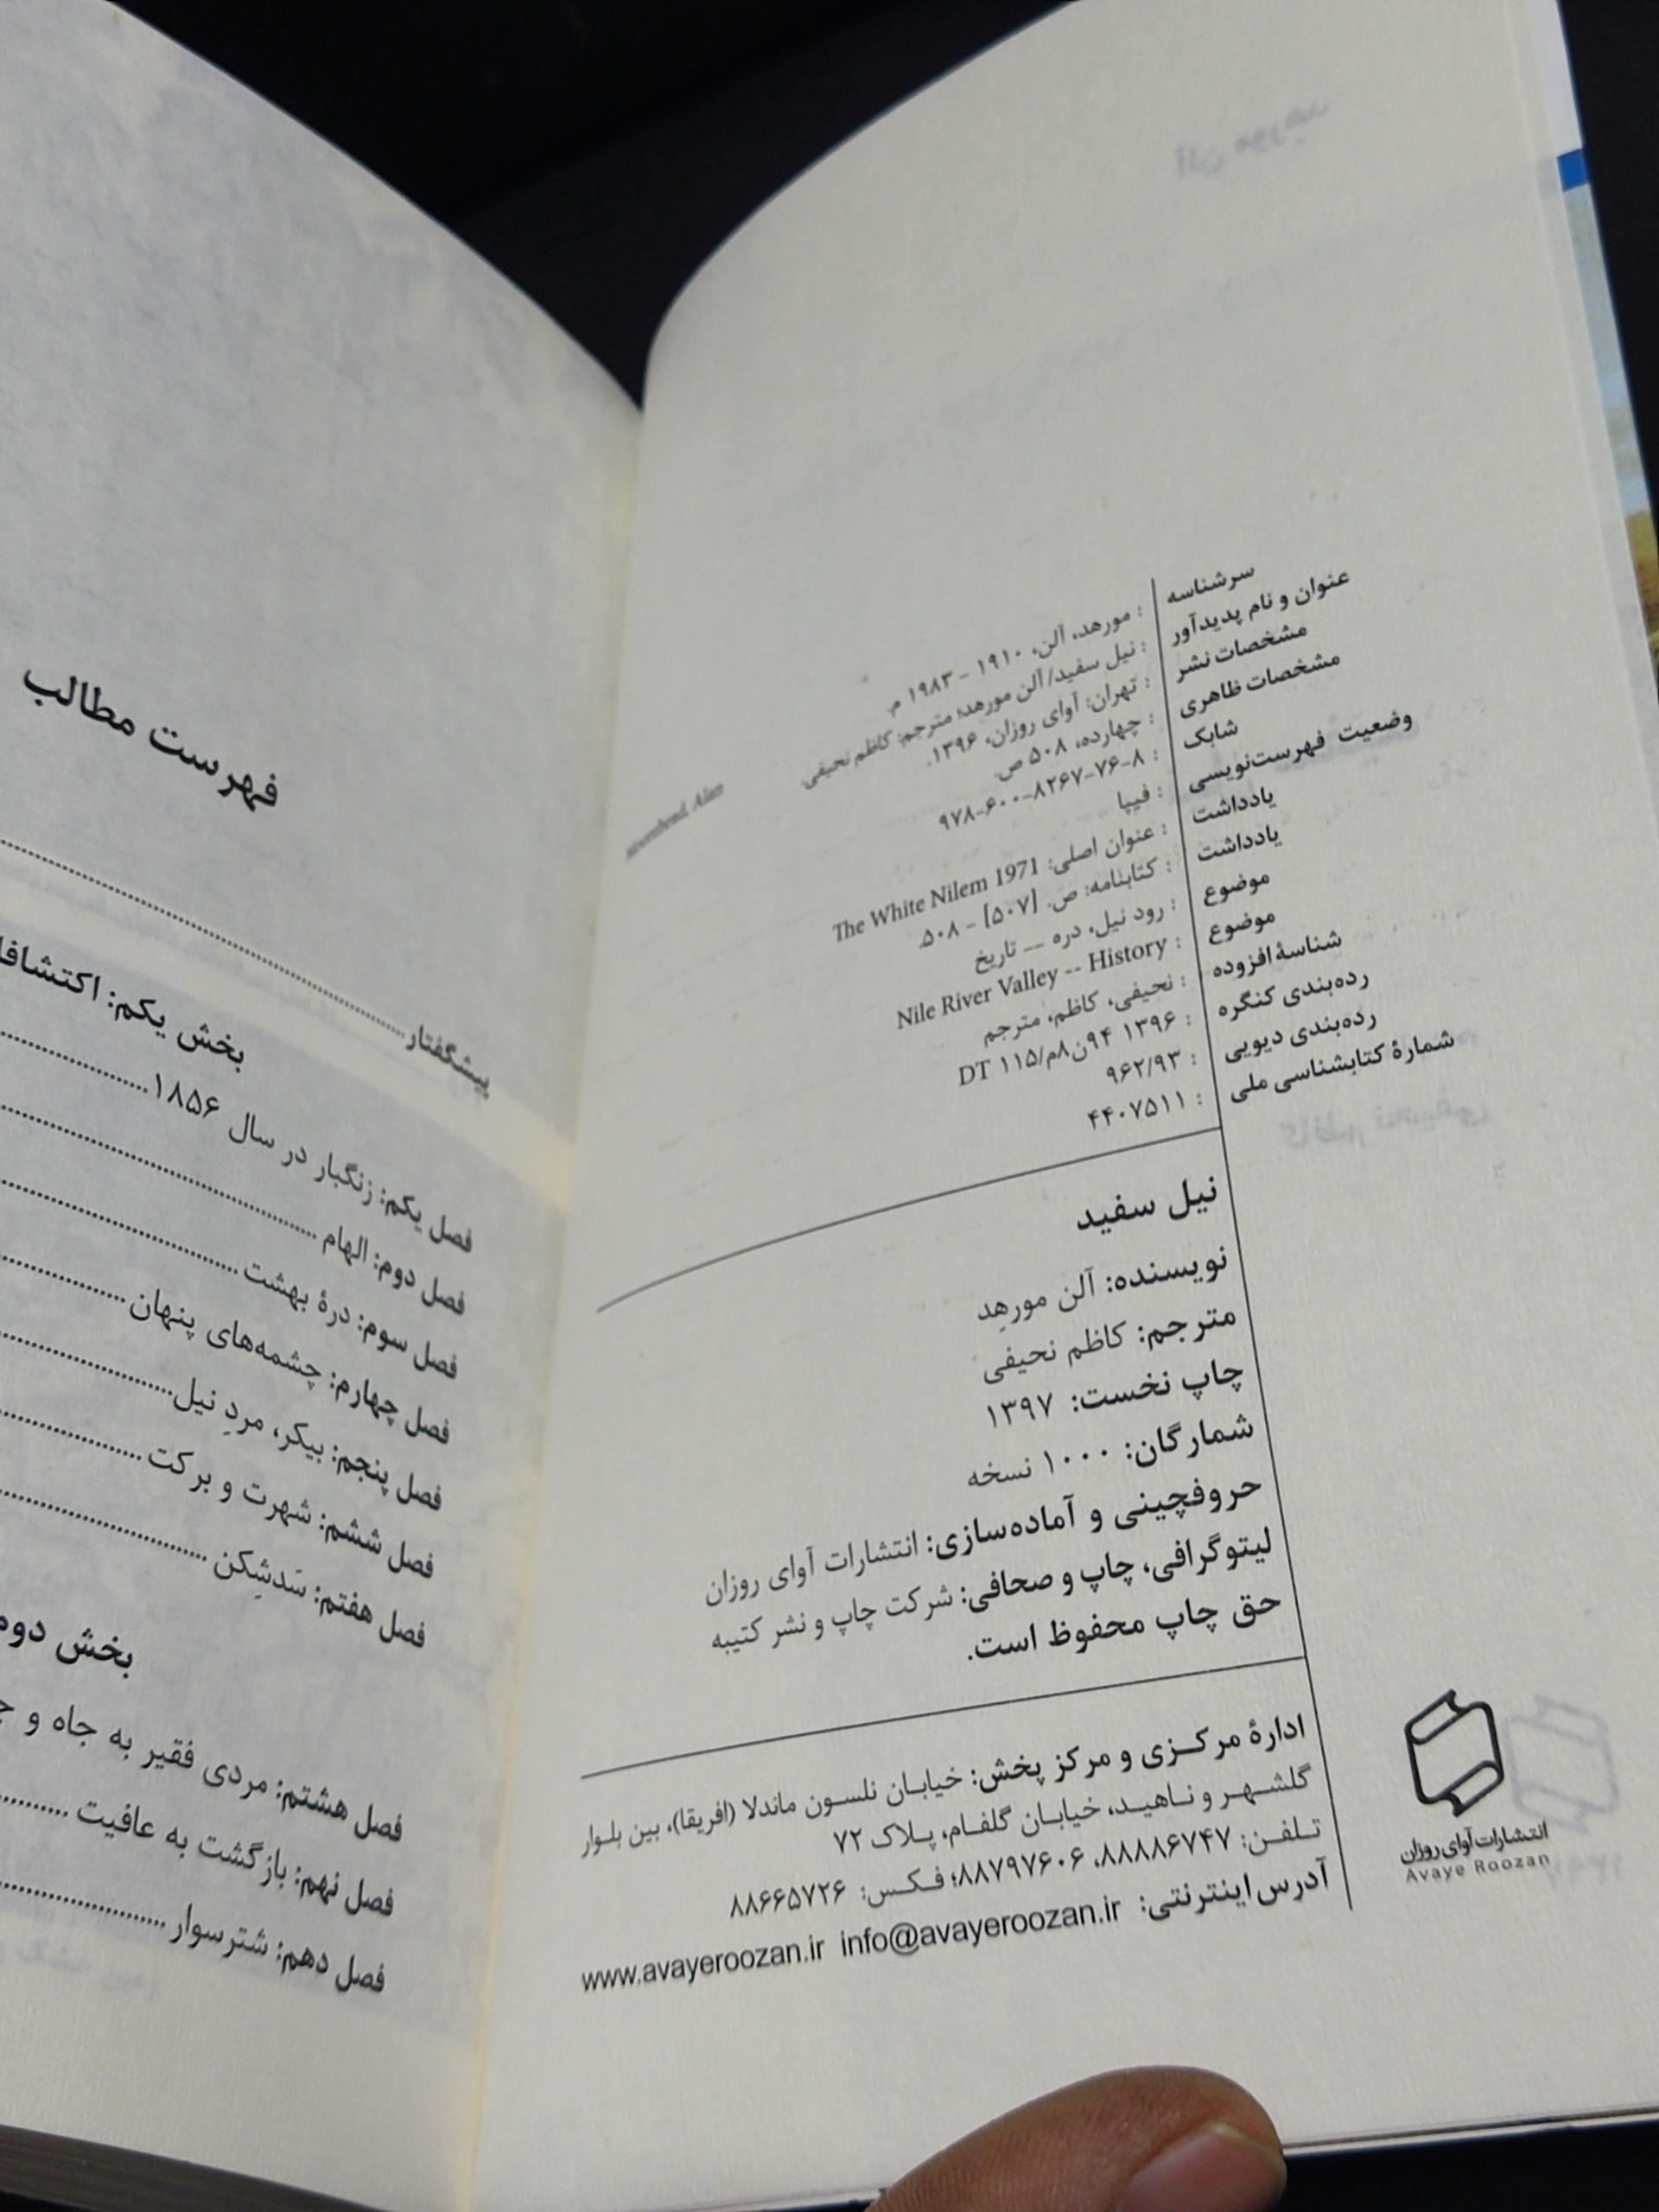 سرشناسه : مورهد، آلن، ۱۹۱۰ - ۱۹۸۳ م. Moorehead, Alan
عنوان و نام پدیدآور : نیل سفید/ آلن مورهد؛ مترجم: کاظم نحیفی.
مشخصات نشر : تهران: آوای روزان، ۱۳۹۶.
مشخصات ظاهری : چهارده، ۵۰۸ ص.
شابک : ۹۷۸-۶۰۰-۸۲۶۷-۷۶-۸
وضعیت فهرست‌نویسی : فیپا
یادداشت : عنوان اصلی: The White Nilem 1971
یادداشت : کتابنامه: ص. [۵۰۷] - ۵۰۸.
موضوع : رود نیل، دره — تاریخ
موضوع : Nile River Valley -- History
شناسهٔ افزوده : نحیفی، کاظم، مترجم
رده‌بندی کنگره : DT ۱۱۵/م۸ن۹۴ ۱۳۹۶
رده‌بندی دیویی : ۹۶۲/۹۳
شمارهٔ کتابشناسی ملی : ۴۴۰۷۵۱۱
نیل سفید
نویسنده: آلن مورهِد
مترجم: کاظم نحیفی
چاپ نخست: ۱۳۹۷
شمارگان: ۱۰۰۰ نسخه
حروفچینی و آماده‌سازی: انتشارات آوای روزان
لیتوگرافی، چاپ و صحافی: شرکت چاپ و نشر کتیبه
حق چاپ محفوظ است.
ادارهٔ مرکزی و مرکز پخش: خیابان نلسون ماندلا (افریقا)، بین بلوار
گلشهر و ناهید، خیابان گلفام، پلاک ۷۲
تلفن: ۸۸۸۸۶۷۴۷، ۸۸۷۹۷۶۰۶؛ فکس: ۸۸۶۶۵۷۲۶
آدرس اینترنتی: www.avayeroozan.ir info@avayeroozan.ir
انتشارات آوای روزان
Avaye Roozan
فهرست مطالب
پیشگفتار
بخش یکم:
فصل یکم: زنگبار در سال ۱۸۵۶
فصل دوم: الهام
فصل سوم: درهٔ بهشت
فصل چهارم: چشمه‌های پنهان
فصل پنجم: بیکر، مردِ نیل
فصل ششم: شهرت و برکت
فصل هفتم: سَدشِکن
بخش دوم
فصل هشتم: مردی فقیر به جاه و
فصل نهم: بازگشت به عافیت
فصل دهم: شترسوار